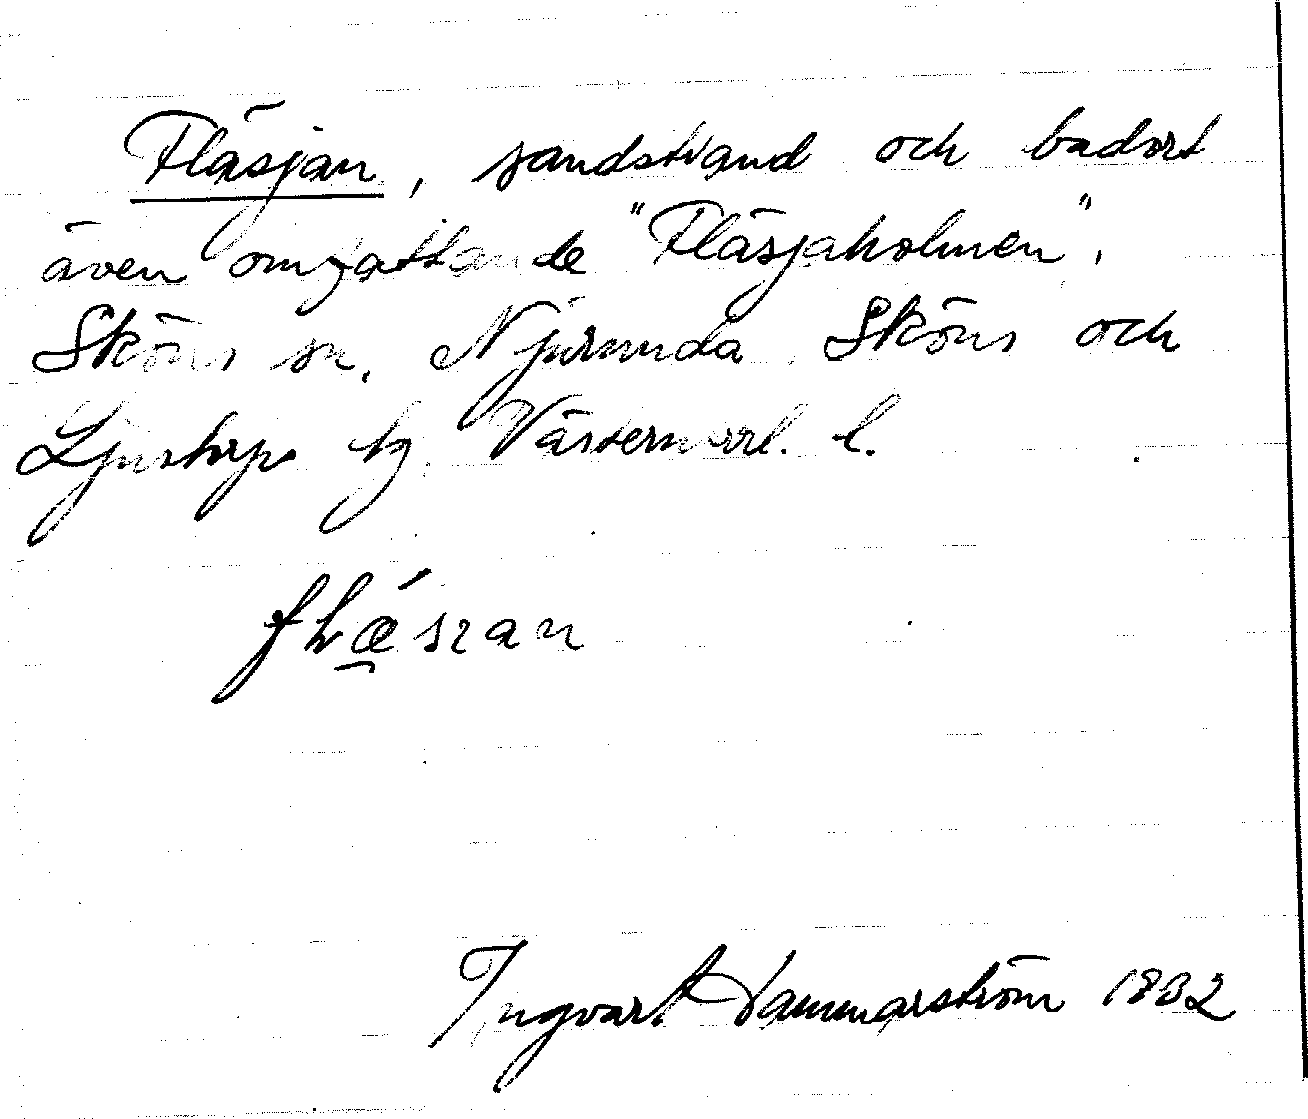 Fläsjan, sandstrand och badort
även omfattande "Fläsjaholmen",
Sköns sn, Njurunda, Sköns och
Ljustorps tg. Västernorrl. l.
Ingvart Hammarström 1932